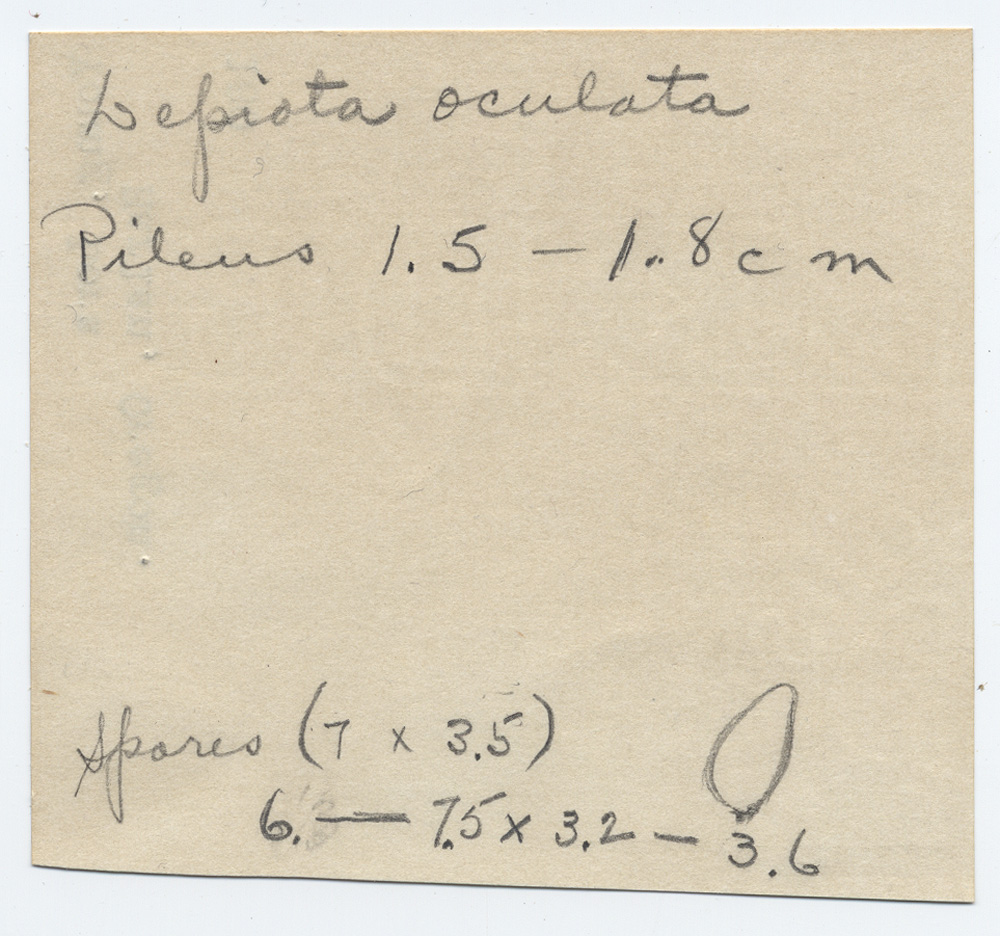 Lepiota oculata
Pileus 1.5 – 1.8 cm
Spores (7 x 3.5)
6. — 7.5 x 3.2 – 3.6